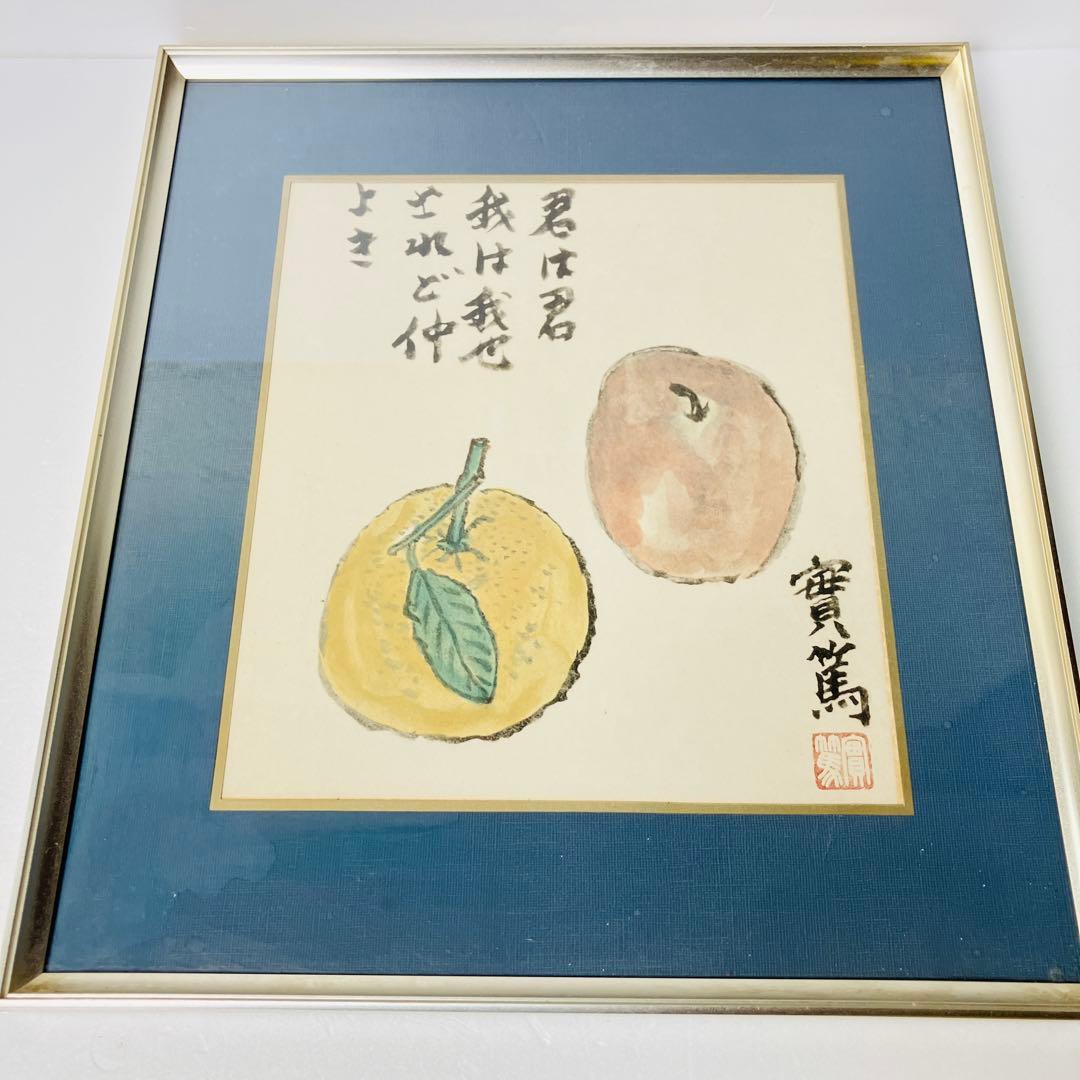 君は君
我は我也
されど仲
よき
實篤
實篤